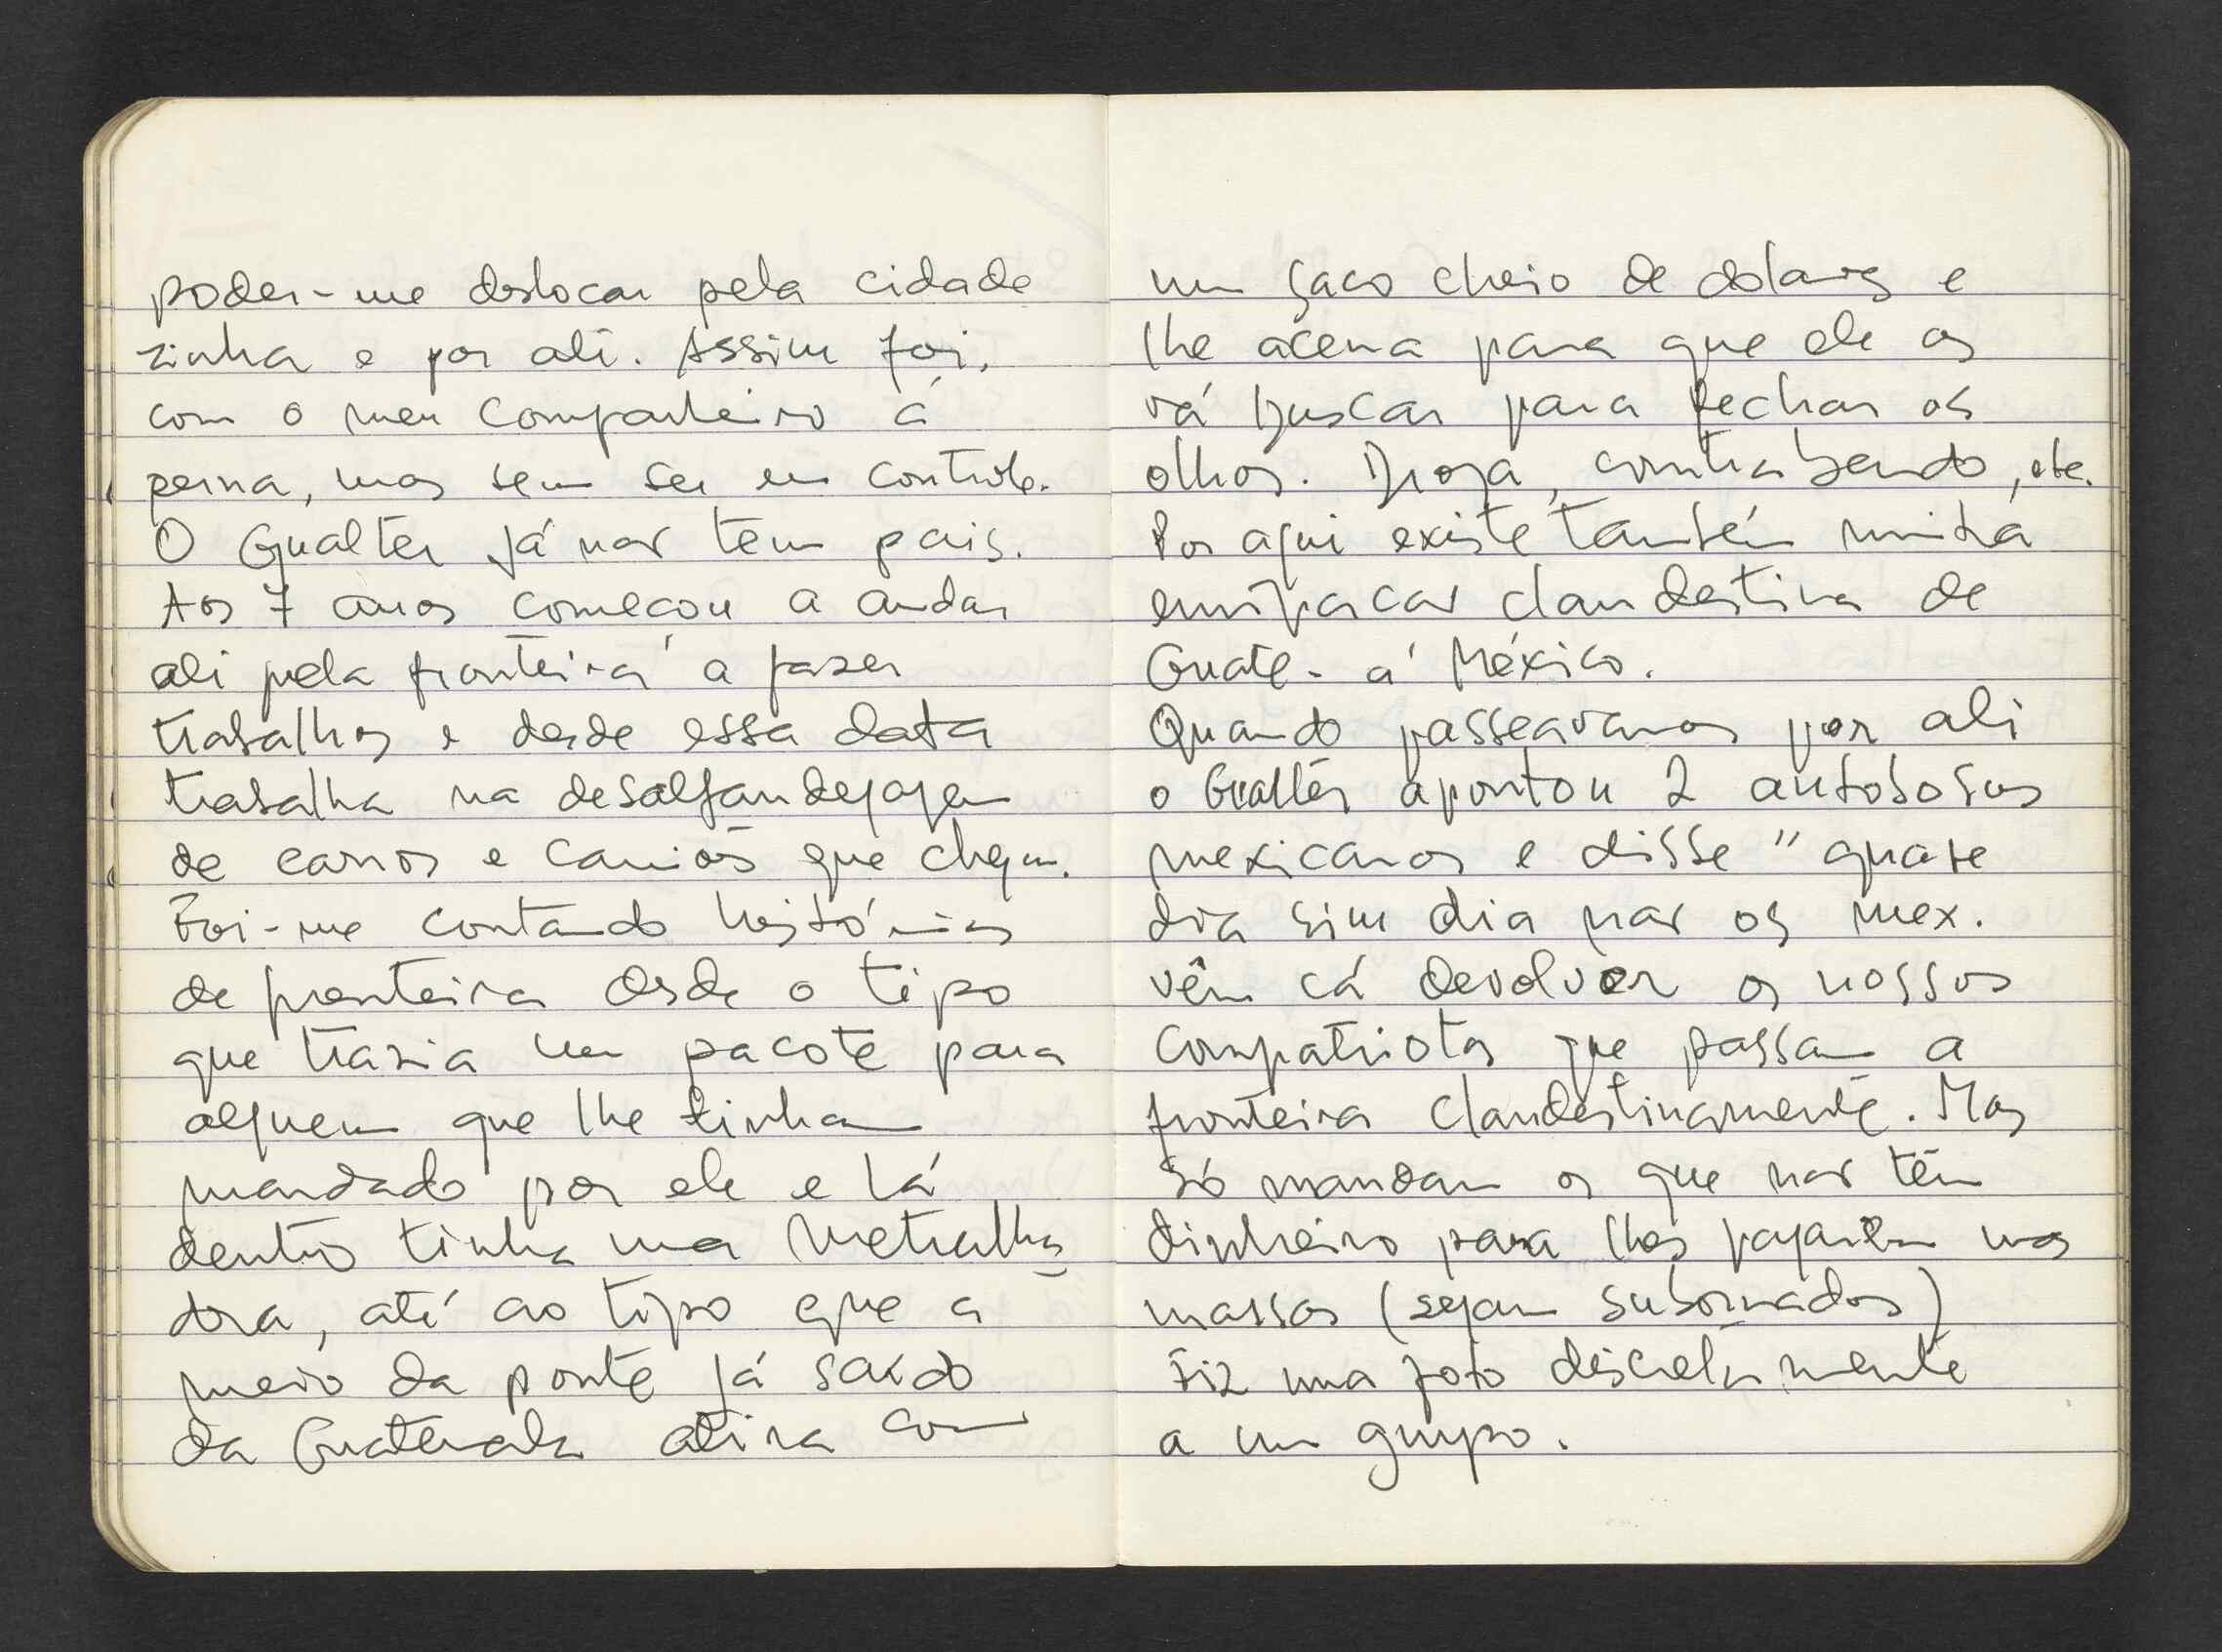 poder-me deslocar pela cidade
zinha e por ali. Assim foi,
com o meu companheiro à
perna, mas sem ser em controle.
O Gualter já não tem pais.
Aos 7 anos começou a andar
ali pela fronteira a fazer
trabalhos e desde essa data
trabalha na desalfandegagem
de carros e camiões que chegam.
Foi-me contando histórias
de fronteira desde o tipo
que trazia um pacote para
alguem que lhe tinham
mandado por ele e lá
dentro tinha uma metralha
dora, até ao tipo que a
meio da ponte já saído
da Guatemala atira com
um saco cheio de dolares e
lhe acena para que ele os
vá buscar para fechar os
olhos. Droga, contrabando, etc.
Por aqui existe também muita
emigração clandestina de
Guate- a México.
Quando passeavamos por ali
o Gualter apontou 2 autobosus
mexicanos e disse " quase
dia sim dia não os mex.
vêm cá devolver os nossos
compatriotas que passam a
fronteira clandestinamente. Mas
só mandam os que não têm
dinheiro para lhes pagarem nas
massas (sejam subornados)
Fiz uma foto discretamente
a um grupo.